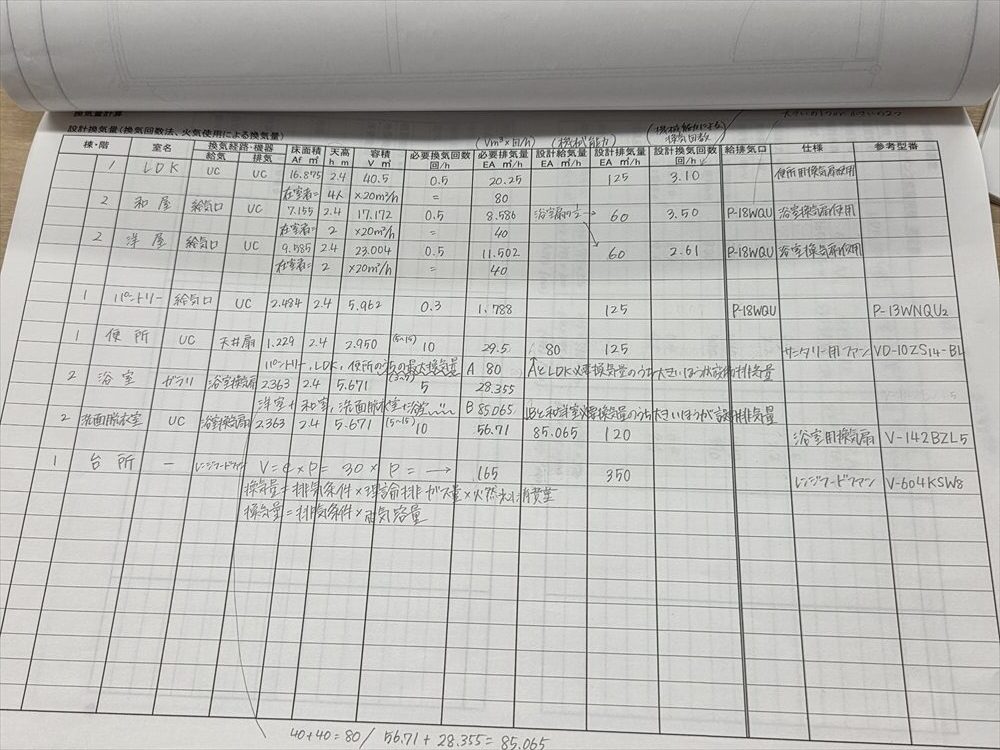 換気量計算
設計換気量(換気回数法、火気使用による換気量)
(Vm³×回/h) (機械能力) (機械能力による換気回数)
棟・階 室名 換気経路・機器 給気 排気 床面積 Af ㎡ 天高 h m 容積 V ㎥ 必要換気回数 回/h 必要排気量 EA ㎥/h 設計給気量 EA ㎥/h 設計排気量 EA ㎥/h 設計換気回数 回/h 給排気口 仕様 参考型番
1 LDK UC UC 16.875 2.4 40.5 0.5 20.25 125 3.10 便所用換気扇使用
在室者= 4人 ×20m³/h = 80
2 和室 給気口 UC 7.155 2.4 17.172 0.5 8.586 浴室扇の1/2→ 60 3.50 P-18WQU 浴室換気扇使用
在室者= 2 ×20m³/h = 40
2 洋室 給気口 UC 9.585 2.4 23.004 0.5 11.502 60 2.61 P-18WQU 浴室換気扇使用
在室者= 2 ×20m³/h = 40
1 パントリー 給気口 UC 2.484 2.4 5.962 0.3 1.788 125 P-18WQU P-13WNQU2
1 便所 UC 天井扇 1.229 2.4 2.950 (5~15) 10 29.5 80 125 サニタリー用ファン VD-10ZS14-BL
パントリー, LDK, 便所のうちの最大換気量 A 80 AとLDK必要換気量のうち大きいほうが設計排気量
2 浴室 ガラリ 浴室換気扇 2.363 2.4 5.671 5 28.355
洋室+和室, 洗面脱衣室+浴室 B 85.065 Bと和洋室必要換気量のうち大きいほうが設計排気量
2 洗面脱衣室 UC 浴室換気扇 2.363 2.4 5.671 (5~15) 10 56.71 85.065 120 浴室用換気扇 V-142BZL5
1 台所 – レンジフードファン V=e×P= 30 × P = → 165 350 レンジフードファン V-604KSW8
換気量=排気条件×理論排ガス量×火燃料消費量
換気量=排気条件×電気容量
40+40=80 / 56.71+28.355=85.065